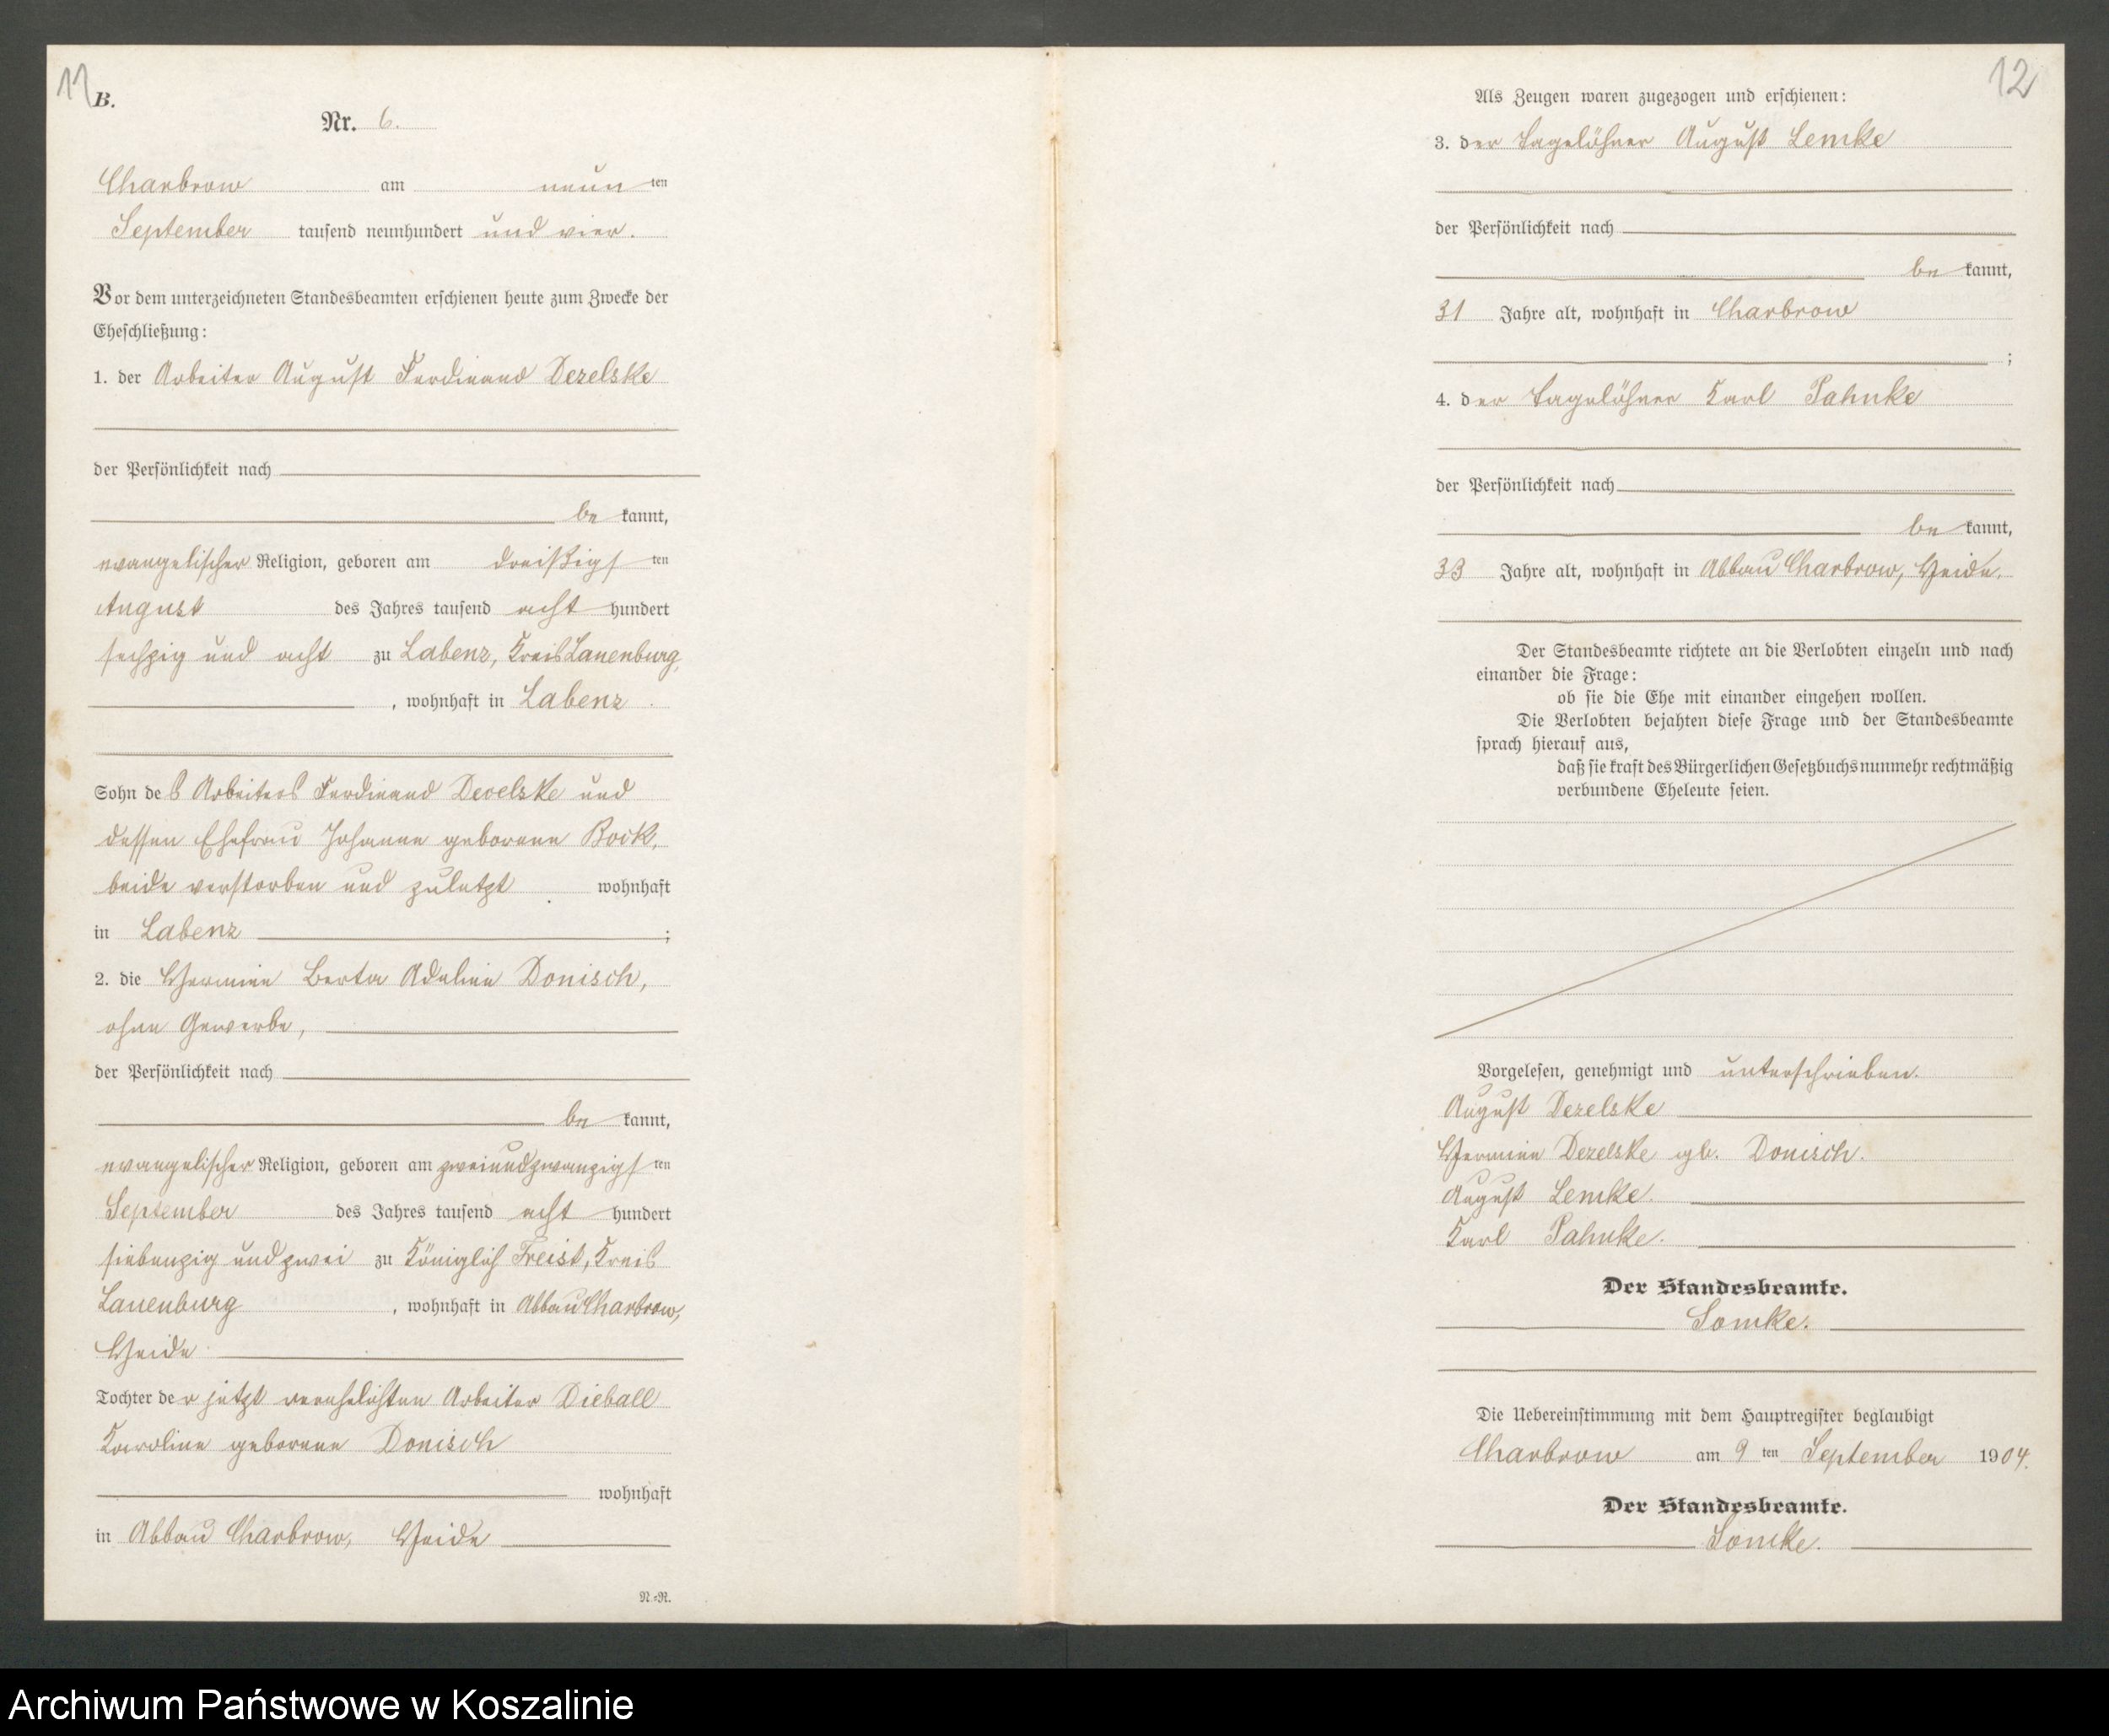 11
B.
Nr. 6.
Charbrow am neunten
September tausend neunhundert und vier.
Vor dem unterzeichneten Standesbeamten erschienen heute zum Zwecke der
Eheschließung:
1. der Arbeiter August Ferdinand Dezelske
der Persönlichkeit nach
be kannt,
evangelischer Religion, geboren am dreißigsten
August des Jahres tausend acht hundert
sechzig und acht zu Labenz, Kreis Lauenburg,
, wohnhaft in Labenz
Sohn des Arbeiters Ferdinand Dezelske und
dessen Ehefrau Johanne geborene Bock,
beide verstorben und zuletzt wohnhaft
in Labenz ;
2. die Hermine Berta Adeline Donisch,
ohne Gewerbe,
der Persönlichkeit nach
be kannt,
evangelischer Religion, geboren am zweiundzwanzigsten
September des Jahres tausend acht hundert
siebenzig und zwei zu Königlich Freist, Kreis
Lauenburg , wohnhaft in Abbau Charbrow,
Heide
Tochter der jetzt verehelichten Arbeiter Dieball
Karoline geborene Donisch
wohnhaft
in Abbau Charbrow, Heide
N.-R.
12
Als Zeugen waren zugezogen und erschienen:
3. der Tagelöhner August Lemke
der Persönlichkeit nach
be kannt,
31 Jahre alt, wohnhaft in Charbrow
;
4. der Tagelöhner Karl Pahnke
der Persönlichkeit nach
be kannt,
33 Jahre alt, wohnhaft in Abbau Charbrow, Heide.
Der Standesbeamte richtete an die Verlobten einzeln und nach
einander die Frage:
ob sie die Ehe mit einander eingehen wollen.
Die Verlobten bejahten diese Frage und der Standesbeamte
sprach hierauf aus,
daß sie kraft des Bürgerlichen Gesetzbuchs nunmehr rechtmäßig
verbundene Eheleute seien.
Vorgelesen, genehmigt und unterschrieben.
August Dezelske
Hermine Dezelske gb. Donisch.
August Lemke.
Karl Pahnke.
Der Standesbeamte.
Die Uebereinstimmung mit dem Hauptregister beglaubigt
Charbrow am 9 ten September 1904.
Der Standesbeamte.
Archiwum Państwowe w Koszalinie